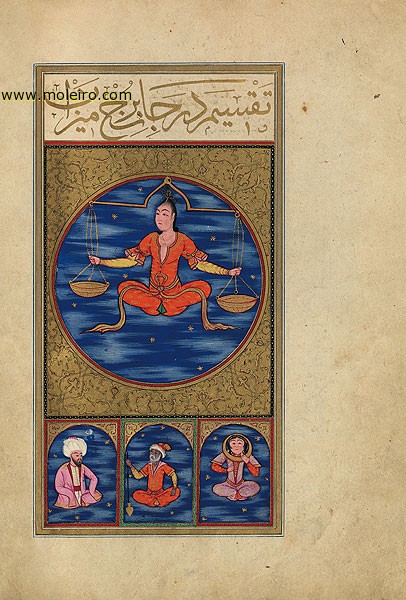 www.moleiro.com
تقسیم درجات برج میزان